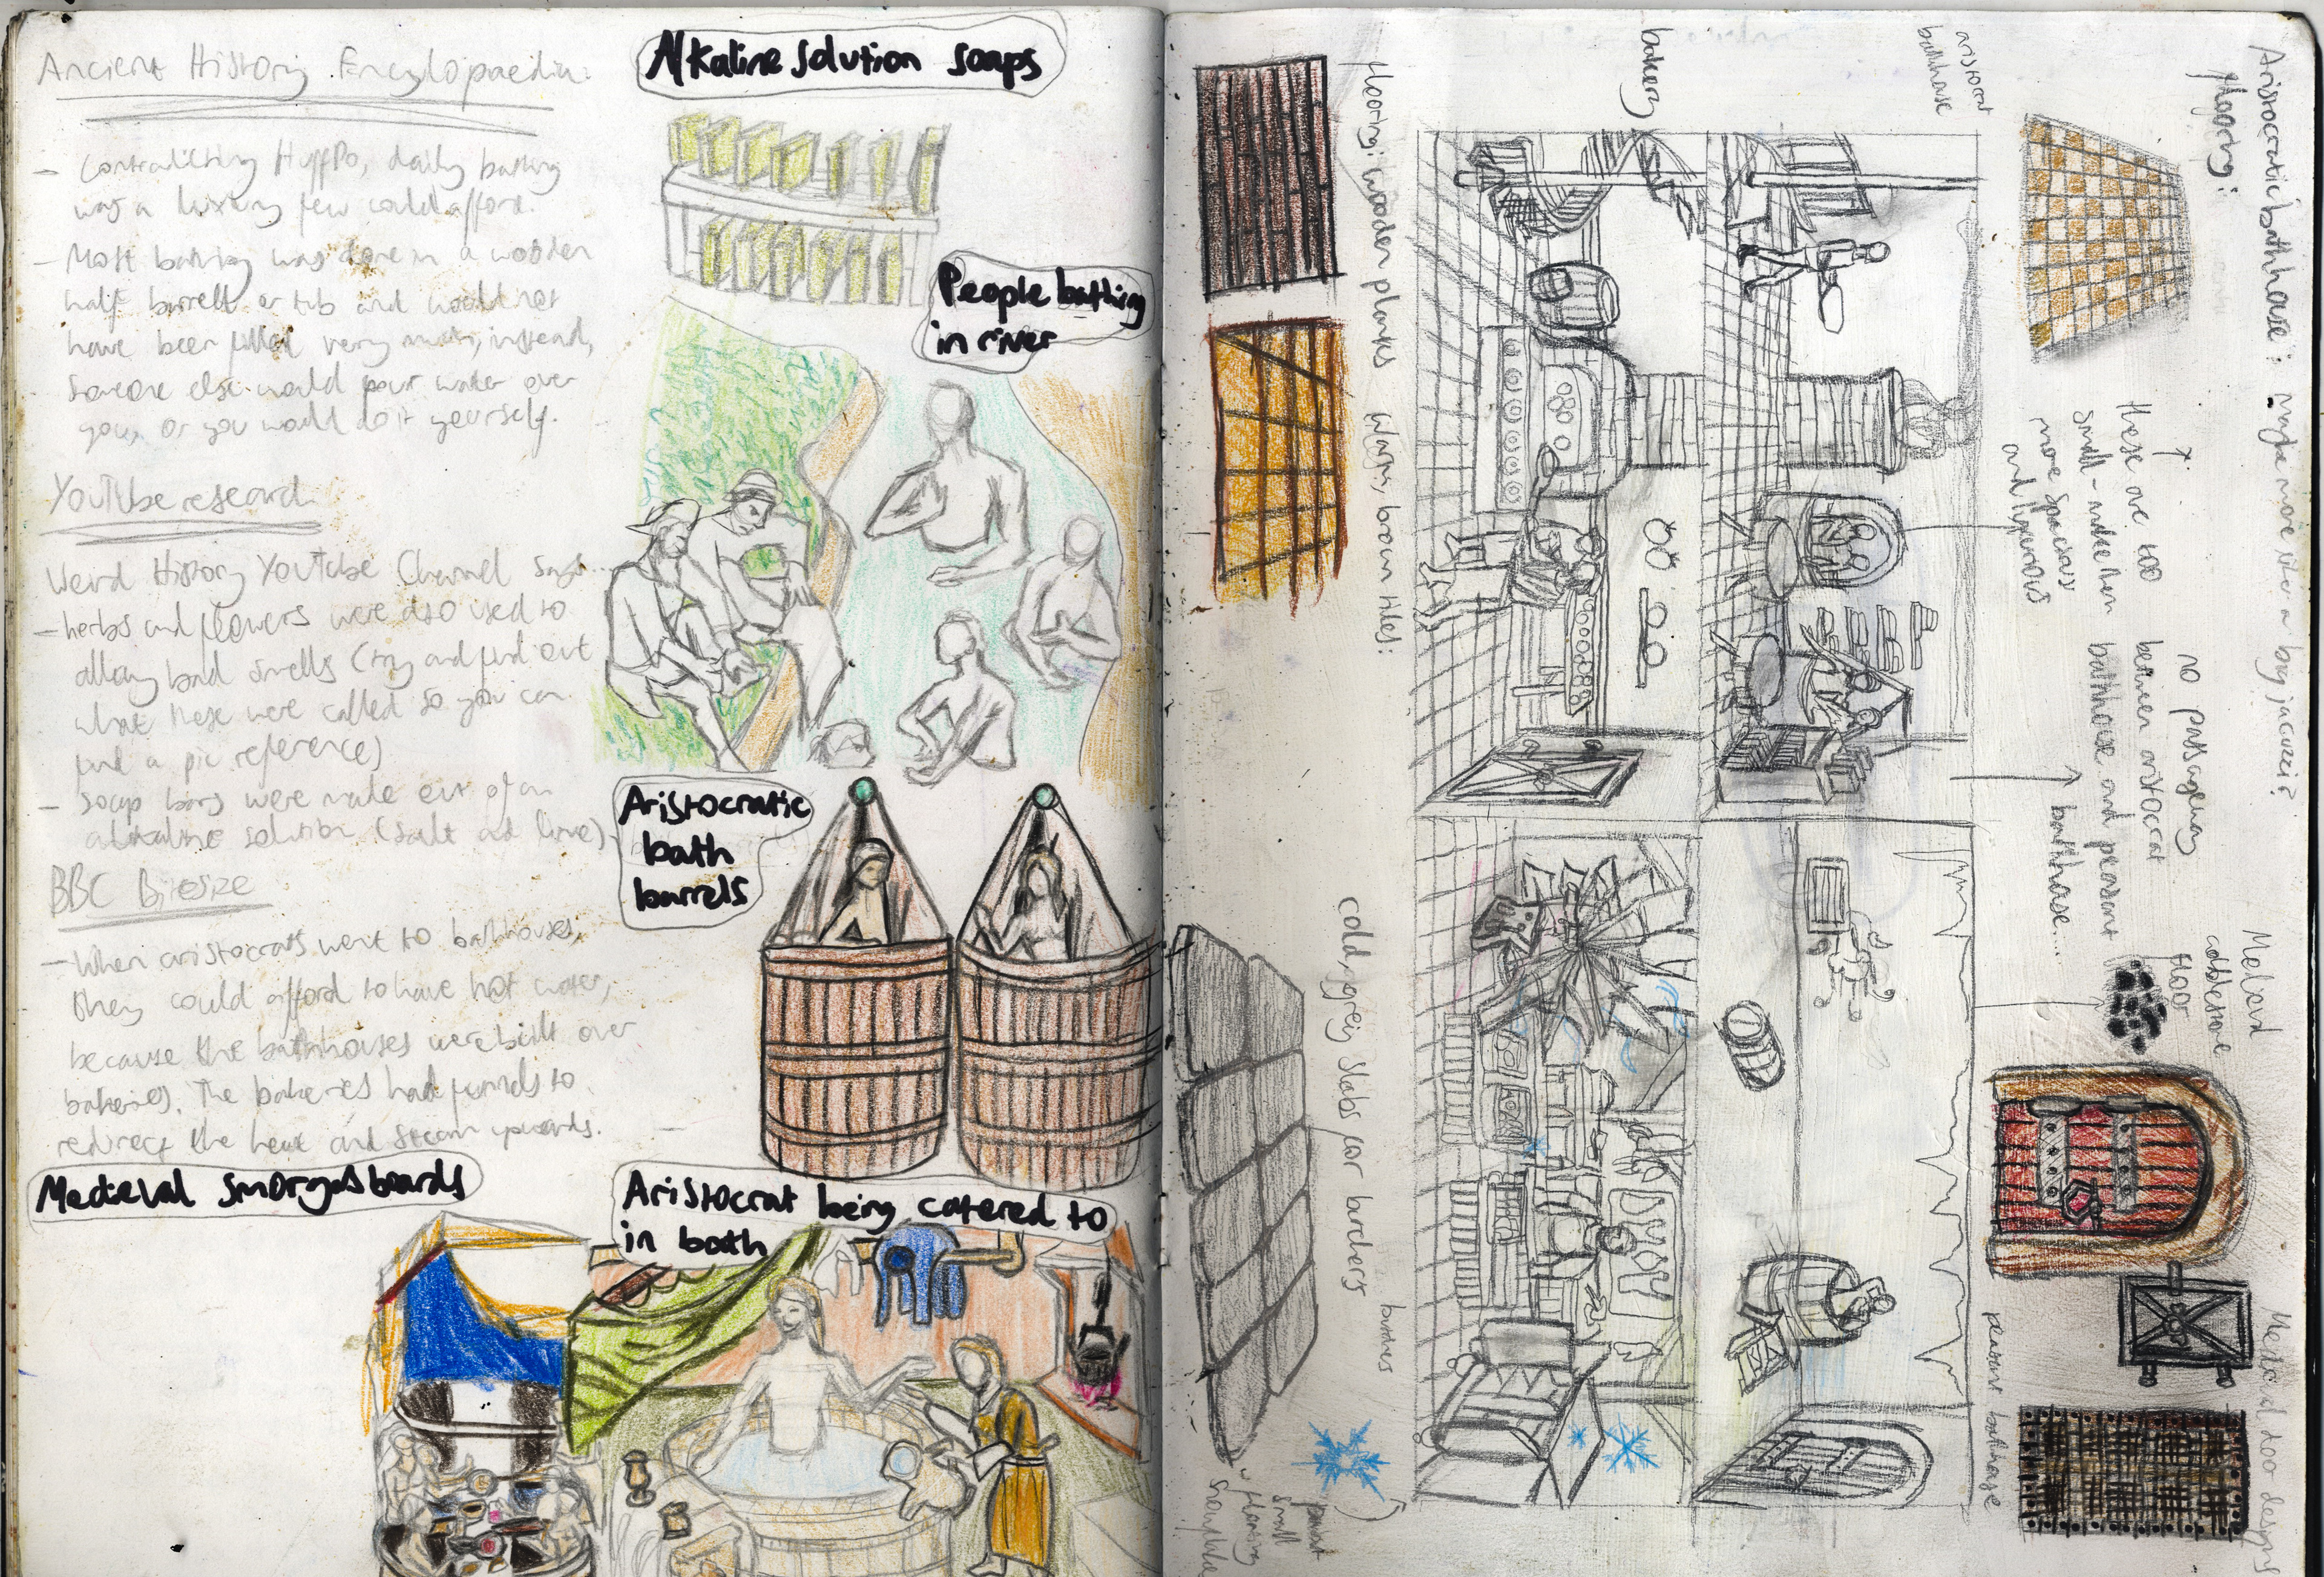 Ancient History Encylopaedia:
- Contradicting HuffPo, daily bathing
was a luxury few could afford.
- Most bathing was done in a wooden
half barrell or tub and would not
have been filled very much, instead,
someone else would pour water over
you, or you would do it yourself.
YouTube research
Weird History YouTube Channel says
- herbs and flowers were also used to
allay bad smells (try and find out
what these were called so you can
find a pic reference)
- soap bars were made out of an
alkaline solution (salt and lime)
BBC Bitesize
- When aristocrats went to bathhouses,
they could afford to have hot water,
because the bathhouses were built over
bakeries. The bakeries had funnels to
redirect the heat and steam upwards.
Medieval Smorgasboards
Alkaline Solution Soaps
People bathing
in river
Aristocratic
bath
barrels
Aristocrat being catered to
in bath
Aristocratic bathhouse: maybe more like a big jacuzzi?
flooring:
these are too
small - make them
more spacious
and ligerious
no passageway
between aristocrat
bathhouse and peasant
bathhouse....
Medieval
cobblestone
floor
Medieval door designs
aristocrat
bathhouse
peasant bathhouse
bakery
flooring: wooden planks
Warm, brown tiles:
cold, grey slabs for butchers
butchers
paint
small
flooring